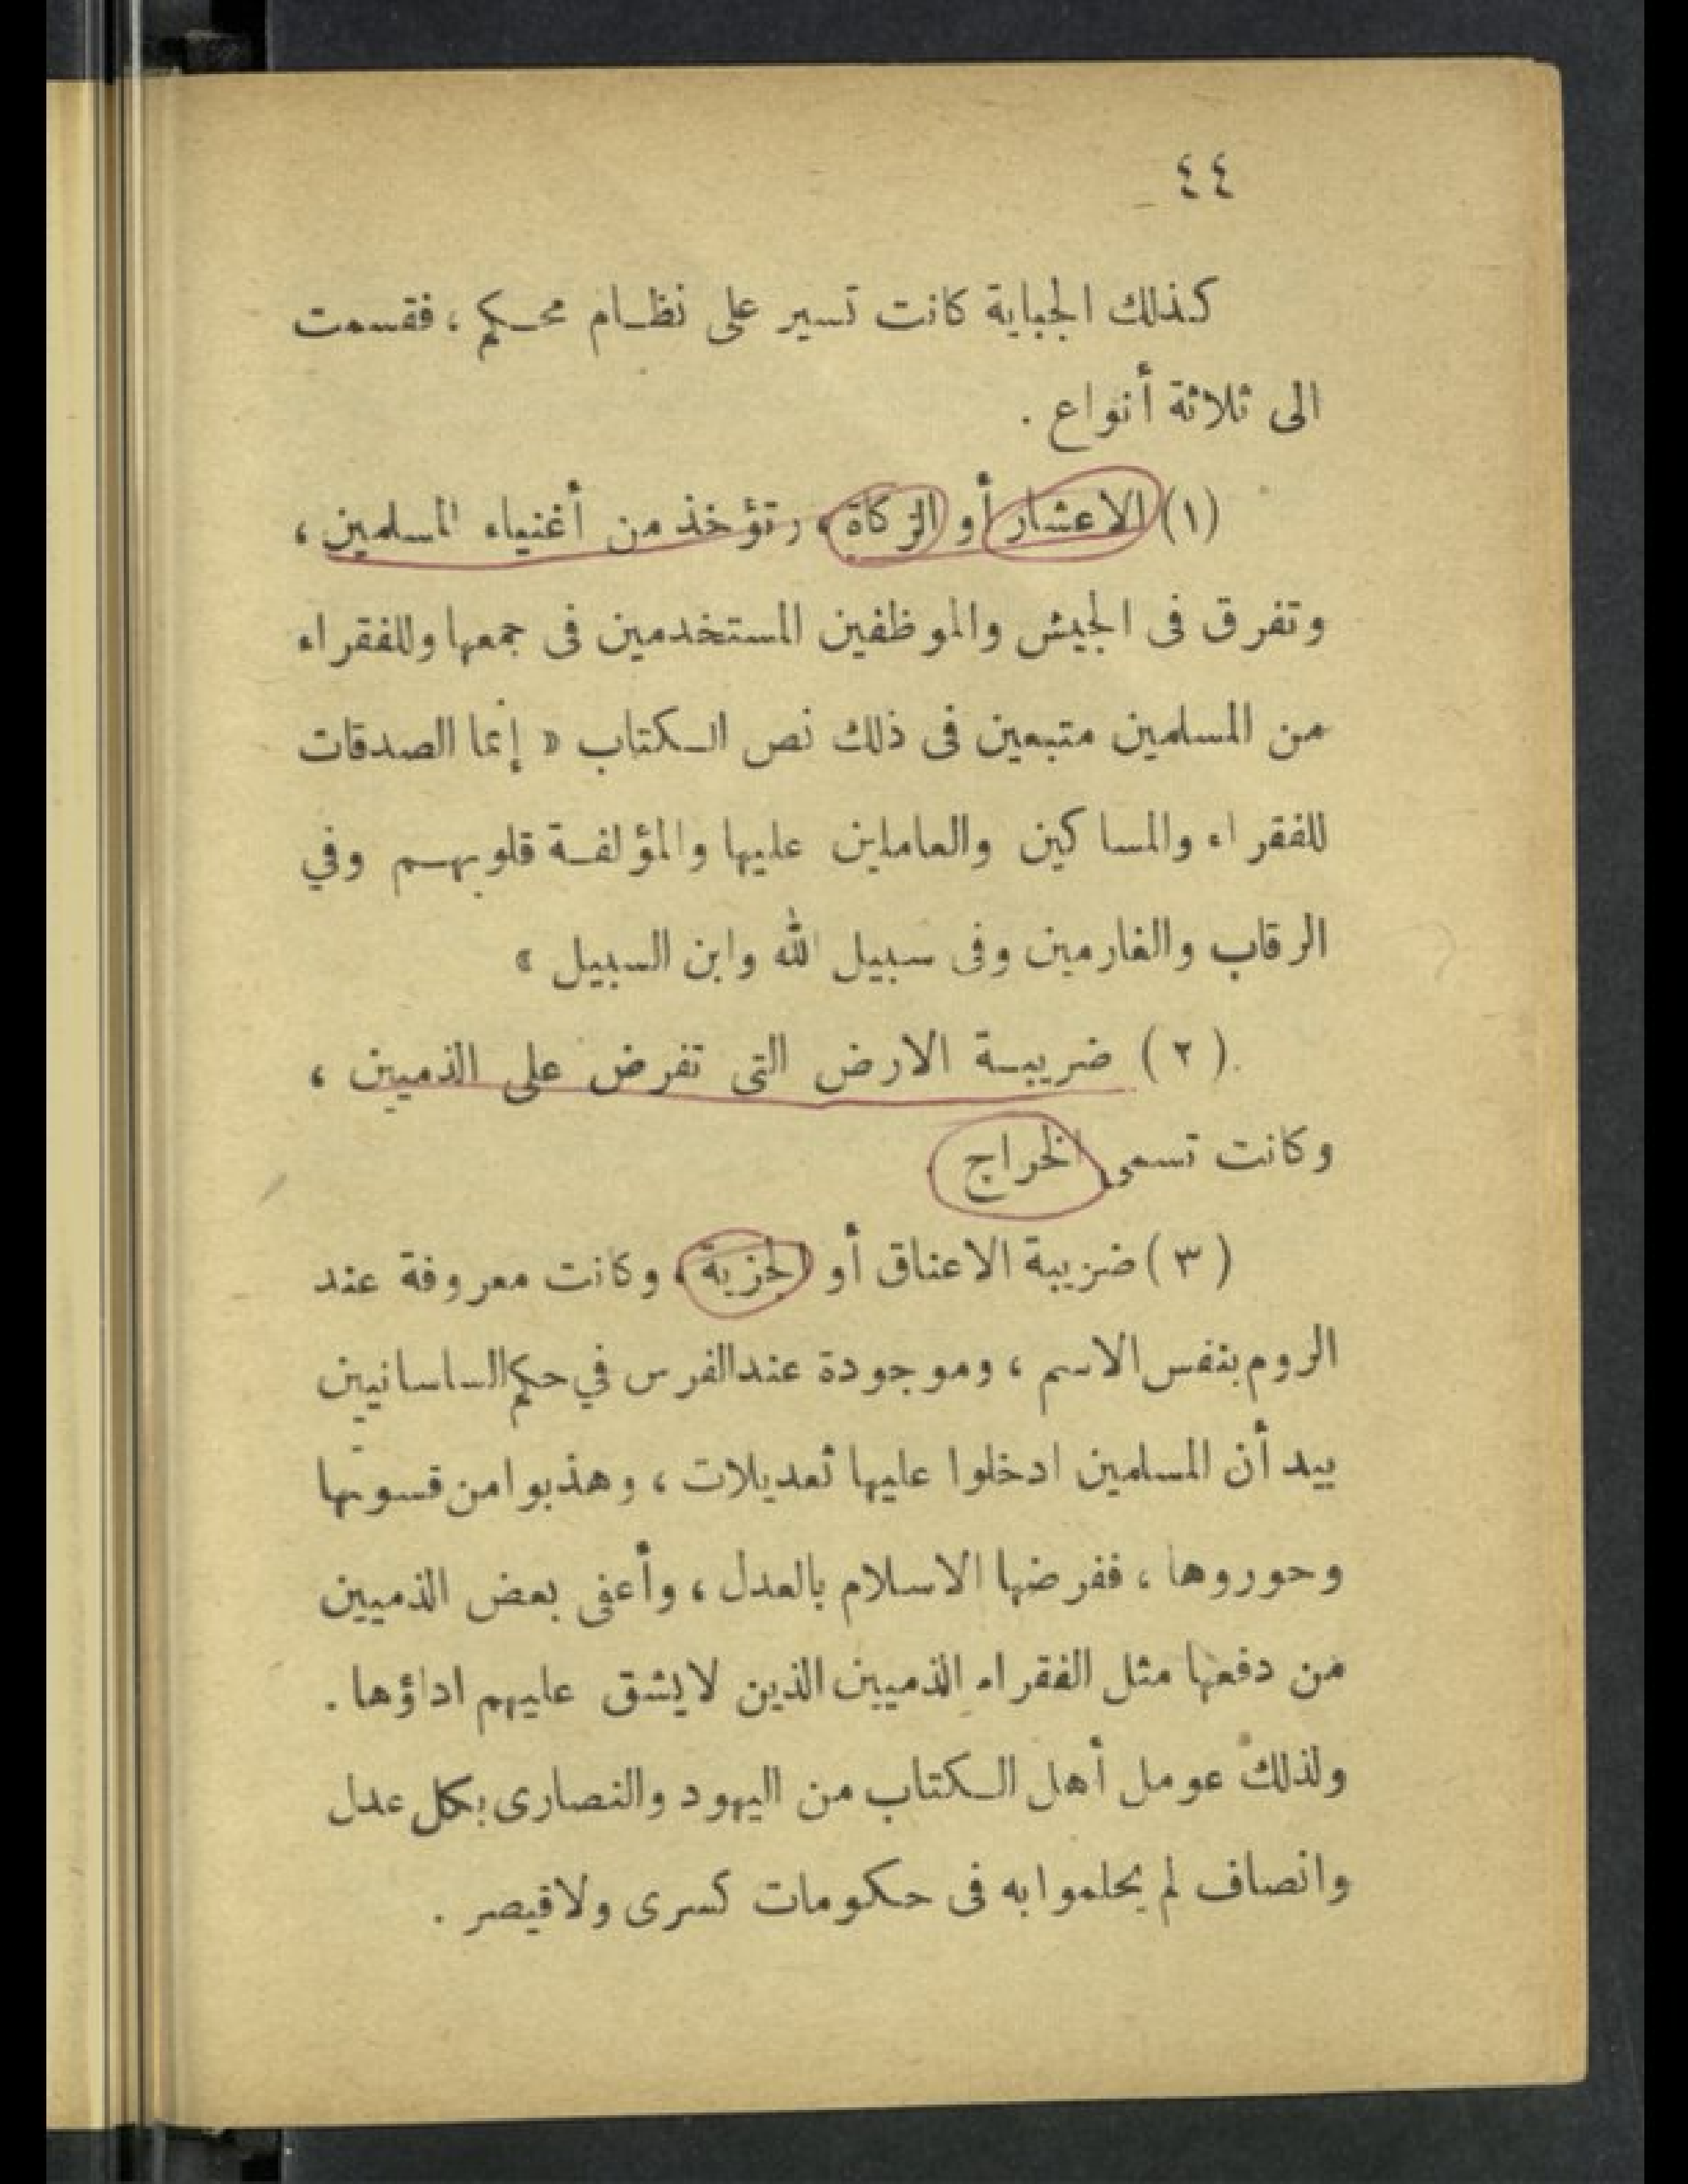 ٤٤
كذلك الجباية كانت تسير على نظام محكم ، فقسمت
الى ثلاثة أنواع .
(١) الاعشار أو الزكاة ، وتؤخذ من أغنياء المسلمين ،
وتفرق فى الجيش والموظفين المستخدمين فى جمعها وللفقراء
من المسلمين متبعين فى ذلك نص الكتاب « إنما الصدقات
للفقراء والمساكين والعاملين عليها والمؤلفة قلوبهم وفي
الرقاب والغارمين وفى سبيل الله وابن السبيل »
(٢) ضريبة الارض التى تفرض على الذميين ،
وكانت تسمى الخراج
(٣) ضريبة الاعناق أو الجزية ، وكانت معروفة عند
الروم بنفس الاسم ، وموجودة عند الفرس في حكم الساسانيين
بيد أن المسلمين ادخلوا عليها تعديلات ، وهذبوا من قسوتها
وحوروها ، ففرضها الاسلام بالعدل ، وأعفى بعض الذميين
من دفعها مثل الفقراء الذميين الذين لايشق عليهم اداؤها .
ولذلك عومل أهل الكتاب من اليهود والنصارى بكل عدل
وانصاف لم يحلموا به فى حكومات كسرى ولاقيصر .